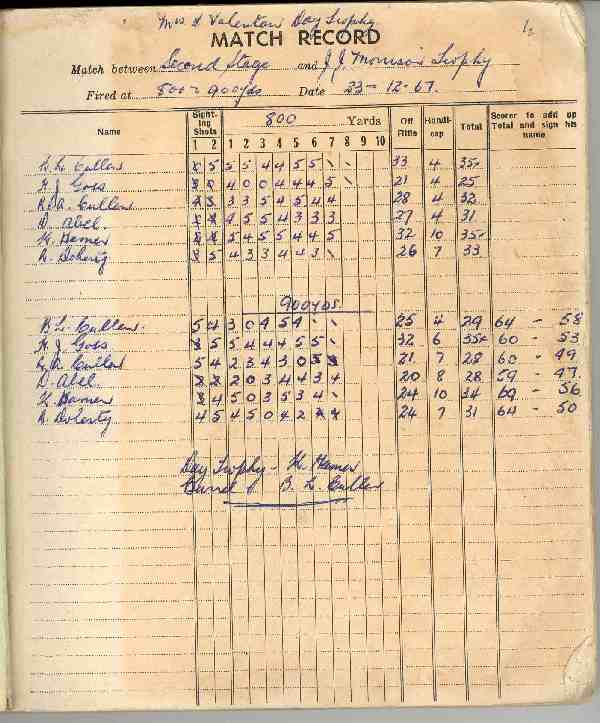 Mrs & Valentau Day Trophy
MATCH RECORD
Match between Second Stage and J. J. Morrison Trophy
Fired at 800 - 900yds Date 23 - 12 - 67.
Name Sighting Shots 800 Yards Off Rifle Handicap Total Scorer to add up Total and sign his name
1 2 1 2 3 4 5 6 7 8 9 10
Cullen 5 5 5 4 4 5 5 \ \ 33 4 35
J Goss 4 0 0 4 4 4 5 \ 21 4 25
A. Cullen 3 3 5 4 5 4 4 28 4 32
D. Abel. 4 5 5 4 3 3 3 27 4 31
Hames 5 4 5 5 4 4 5 32 10 35
Doherty 5 4 3 3 4 4 3 \ 26 7 33
900yds
B. L. Cullen. 5 4 3 0 4 5 4 \ \ 25 4 29 64 - 58
J Goss 5 5 4 4 4 5 5 \ 32 6 35 60 - 53
A. Cullen 5 4 2 3 4 3 0 21 7 28 60 - 49
D. Abel 2 0 3 4 4 3 4 20 8 28 59 - 47
Hames 4 5 0 3 5 3 4 \ 24 10 34 69 - 56
Doherty 4 5 4 5 0 4 2 24 7 31 64 - 50
Day Trophy - H. Hames
B. L. Cullen